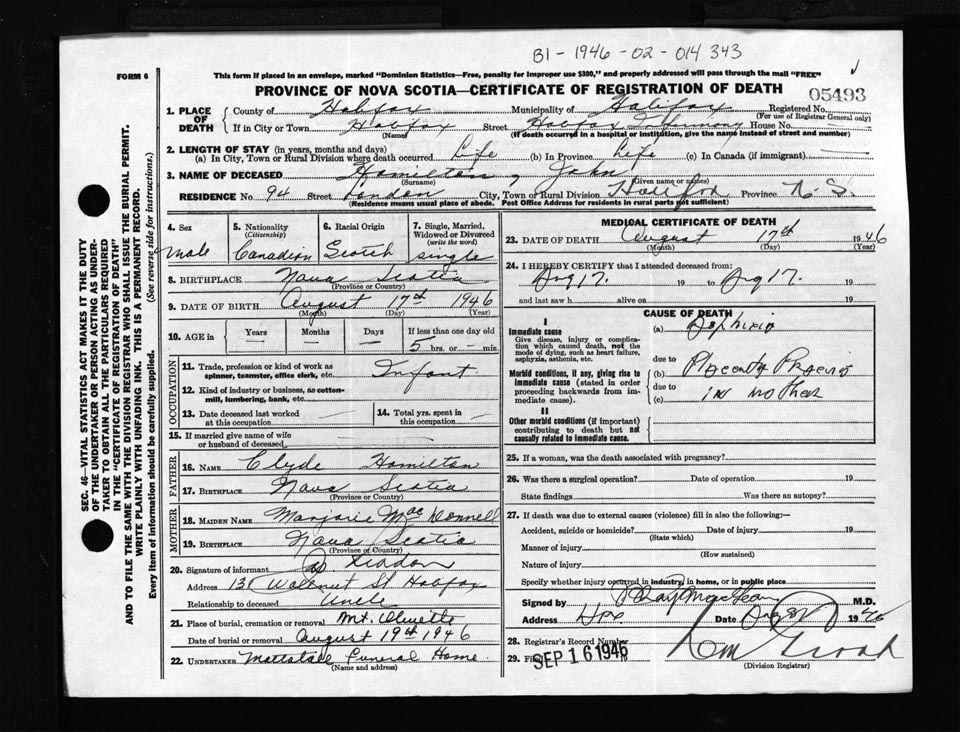 B1-1946-02-014343
FORM 6
This form if placed in an envelope, marked "Dominion Statistics—Free, penalty for improper use $300," and properly addressed will pass through the mail "FREE"
PROVINCE OF NOVA SCOTIA—CERTIFICATE OF REGISTRATION OF DEATH
05493
1. PLACE OF DEATH
County of Halifax Municipality of Halifax Registered No.
(For use of Registrar General only)
If in City or Town Halifax Street Halifax Infirmary House No.
(Name) (If death occurred in a hospital or institution, give the name instead of street and number)
2. LENGTH OF STAY (in years, months and days)
(a) In City, Town or Rural Division where death occurred Life (b) In Province Life (c) In Canada (if immigrant) —
3. NAME OF DECEASED Hamilton, John
(Surname) (Given name or names)
RESIDENCE No. 94 London City, Town or Rural Division Province N.S.
(Residence means usual place of abode. Post Office Address for residents in rural parts not sufficient)
4. Sex
male
5. Nationality
(Citizenship)
Canadian
6. Racial Origin
Scotch
7. Single, Married, Widowed or Divorced
(write the word)
single
8. BIRTHPLACE Nova Scotia
(Province or Country)
9. DATE OF BIRTH August 17th 1946
(Month) (Day) (Year)
10. AGE in
Years Months Days If less than one day old
— — — 5 hrs. or — min.
OCCUPATION
11. Trade, profession or kind of work as spinner, teamster, office clerk, etc. Infant
12. Kind of industry or business, as cotton-mill, lumbering, bank, etc.
13. Date deceased last worked at this occupation
14. Total yrs. spent in this occupation
15. If married give name of wife or husband of deceased
FATHER
16. NAME Clyde Hamilton
17. BIRTHPLACE Nova Scotia
(Province or Country)
MOTHER
18. MAIDEN NAME Marjorie MacDonnell
19. BIRTHPLACE Nova Scotia
(Province or Country)
20. Signature of informant
Address 131 Walnut St Halifax
Relationship to deceased Uncle
21. Place of burial, cremation or removal Mt. Olivette
Date of burial or removal August 19th 1946
22. UNDERTAKER Mattatall Funeral Home
(Name and address)
MEDICAL CERTIFICATE OF DEATH
23. DATE OF DEATH August 17th 1946
(Month) (Day) (Year)
24. I HEREBY CERTIFY that I attended deceased from:
Aug 17. 19 to Aug 17. 19
and last saw h alive on 19
CAUSE OF DEATH
I
Immediate cause
Give disease, injury or complication which caused death, not the mode of dying, such as heart failure, asphyxia, asthenia, etc.
(a) Asphixia
due to
Morbid conditions, if any, giving rise to immediate cause (stated in order proceeding backwards from immediate cause).
(b) Placenta Praevia
due to
(c) in mother
II
Other morbid conditions (if important) contributing to death but not causally related to immediate cause.
25. If a woman, was the death associated with pregnancy?
26. Was there a surgical operation? Date of operation 19
State findings Was there an autopsy?
27. If death was due to external causes (violence) fill in also the following:—
Accident, suicide or homicide? Date of injury 19
(State which)
Manner of injury
(How sustained)
Nature of injury
Specify whether injury occurred in industry, in home, or in public place
Signed by M.D.
Address Hfx Date 1946
28. Registrar's Record Number
29. SEP 16 1946
(Division Registrar)
SEC. 46—VITAL STATISTICS ACT MAKES IT THE DUTY
OF THE UNDERTAKER OR PERSON ACTING AS UNDER-
TAKER TO OBTAIN ALL THE PARTICULARS REQUIRED
IN THE "CERTIFICATE OF REGISTRATION OF DEATH"
AND TO FILE THE SAME WITH THE DIVISION REGISTRAR WHO SHALL ISSUE THE BURIAL PERMIT.
WRITE PLAINLY WITH UNFADING INK. THIS IS A PERMANENT RECORD.
Every item of information should be carefully supplied. (See reverse side for instructions.)